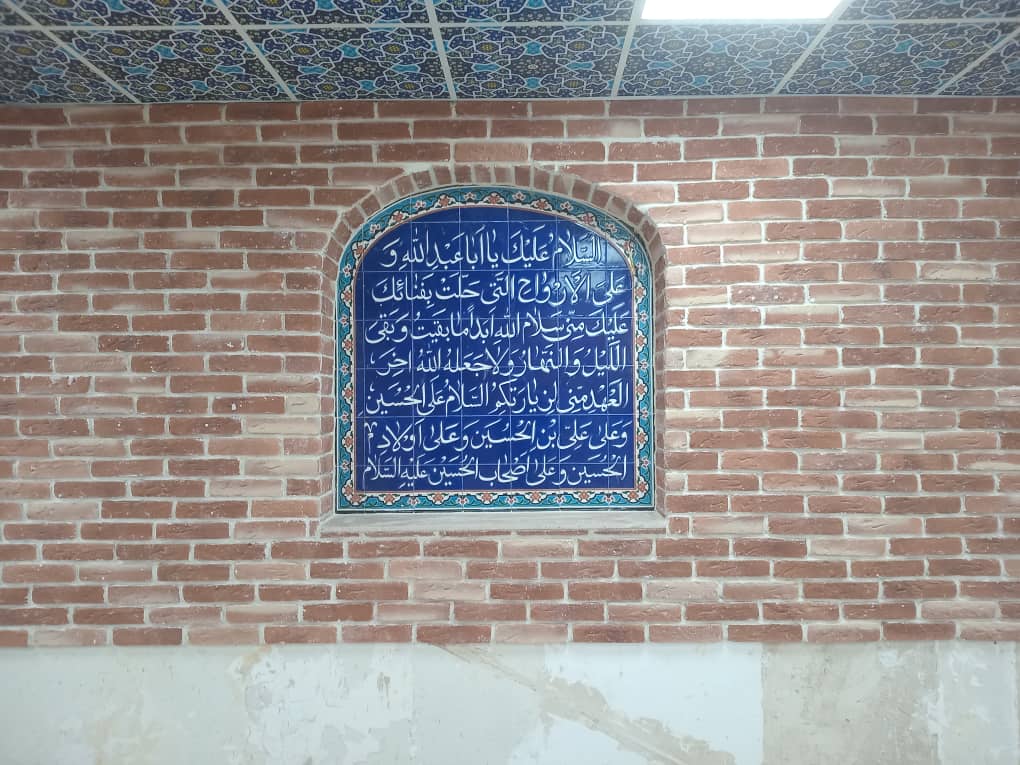 السَّلامُ عَلَيْكَ يا اَبا عَبْدِ اللهِ وَ
عَلَى الْاَرْواحِ الَّتى حَلَّتْ بِفِنائِكَ
عَلَيْكَ مِنّى سَلامُ اللهِ اَبَدًا ما بَقيتُ وَ بَقِىَ
اللَّيْلُ وَ النَّهارُ وَ لا جَعَلَهُ اللهُ آخِرَ
الْعَهْدِ مِنّى لِزِيارَتِكُمْ اَلسَّلامُ عَلَى الْحُسَيْنِ
وَ عَلى عَلِىِّ بْنِ الْحُسَيْنِ وَ عَلى اَوْلادِ
الْحُسَيْنِ وَ عَلى اَصْحابِ الْحُسَيْنِ عَلَيْهِ السَّلام